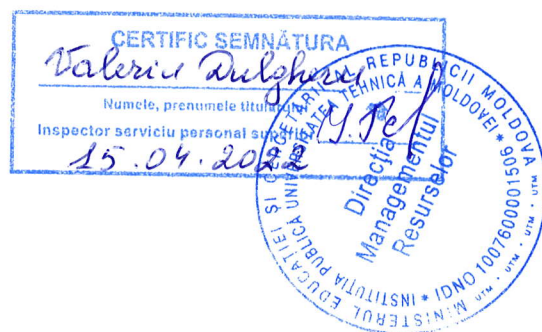 CERTIFIC SEMNĂTURA
Valeriu Dulgheru
Numele, prenumele titularului
Inspector serviciu personal superior
15.04.2022
MINISTERUL EDUCAȚIEI ȘI CERCETĂRII AL REPUBLICII MOLDOVA
INSTITUȚIA PUBLICĂ UNIVERSITATEA TEHNICĂ A MOLDOVEI * IDNO 1007600001506 *
UTM · UTM · UTM
Direcția
Managementul
Resurselor